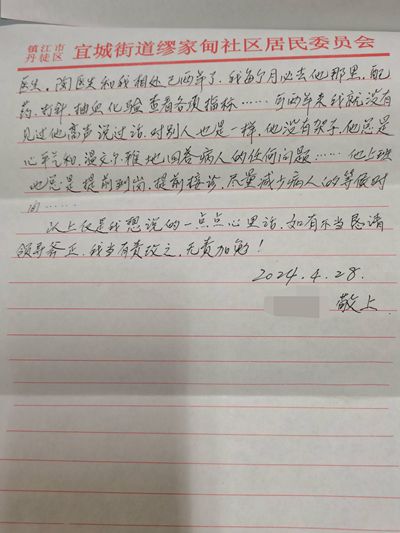 镇江市
丹徒区 宜城街道缪家甸社区居民委员会
医生，陶医生和我相处已两年了，我每个月必去他那里，配
药、打针、抽血化验、查看各项指标……可两年来我就没有
见过他高声说过话，对别人也是一样，他没有架子，他总是
心平气和，温文尔雅地回答病人的任何问题……他上班
也总是提前到岗，提前接诊，尽量减少病人的等候时
间……
以上仅是我想说的一点点心里话，如有不当恳请
领导斧正，我当有责改之，无责加勉！
2024.4.28.
敬上